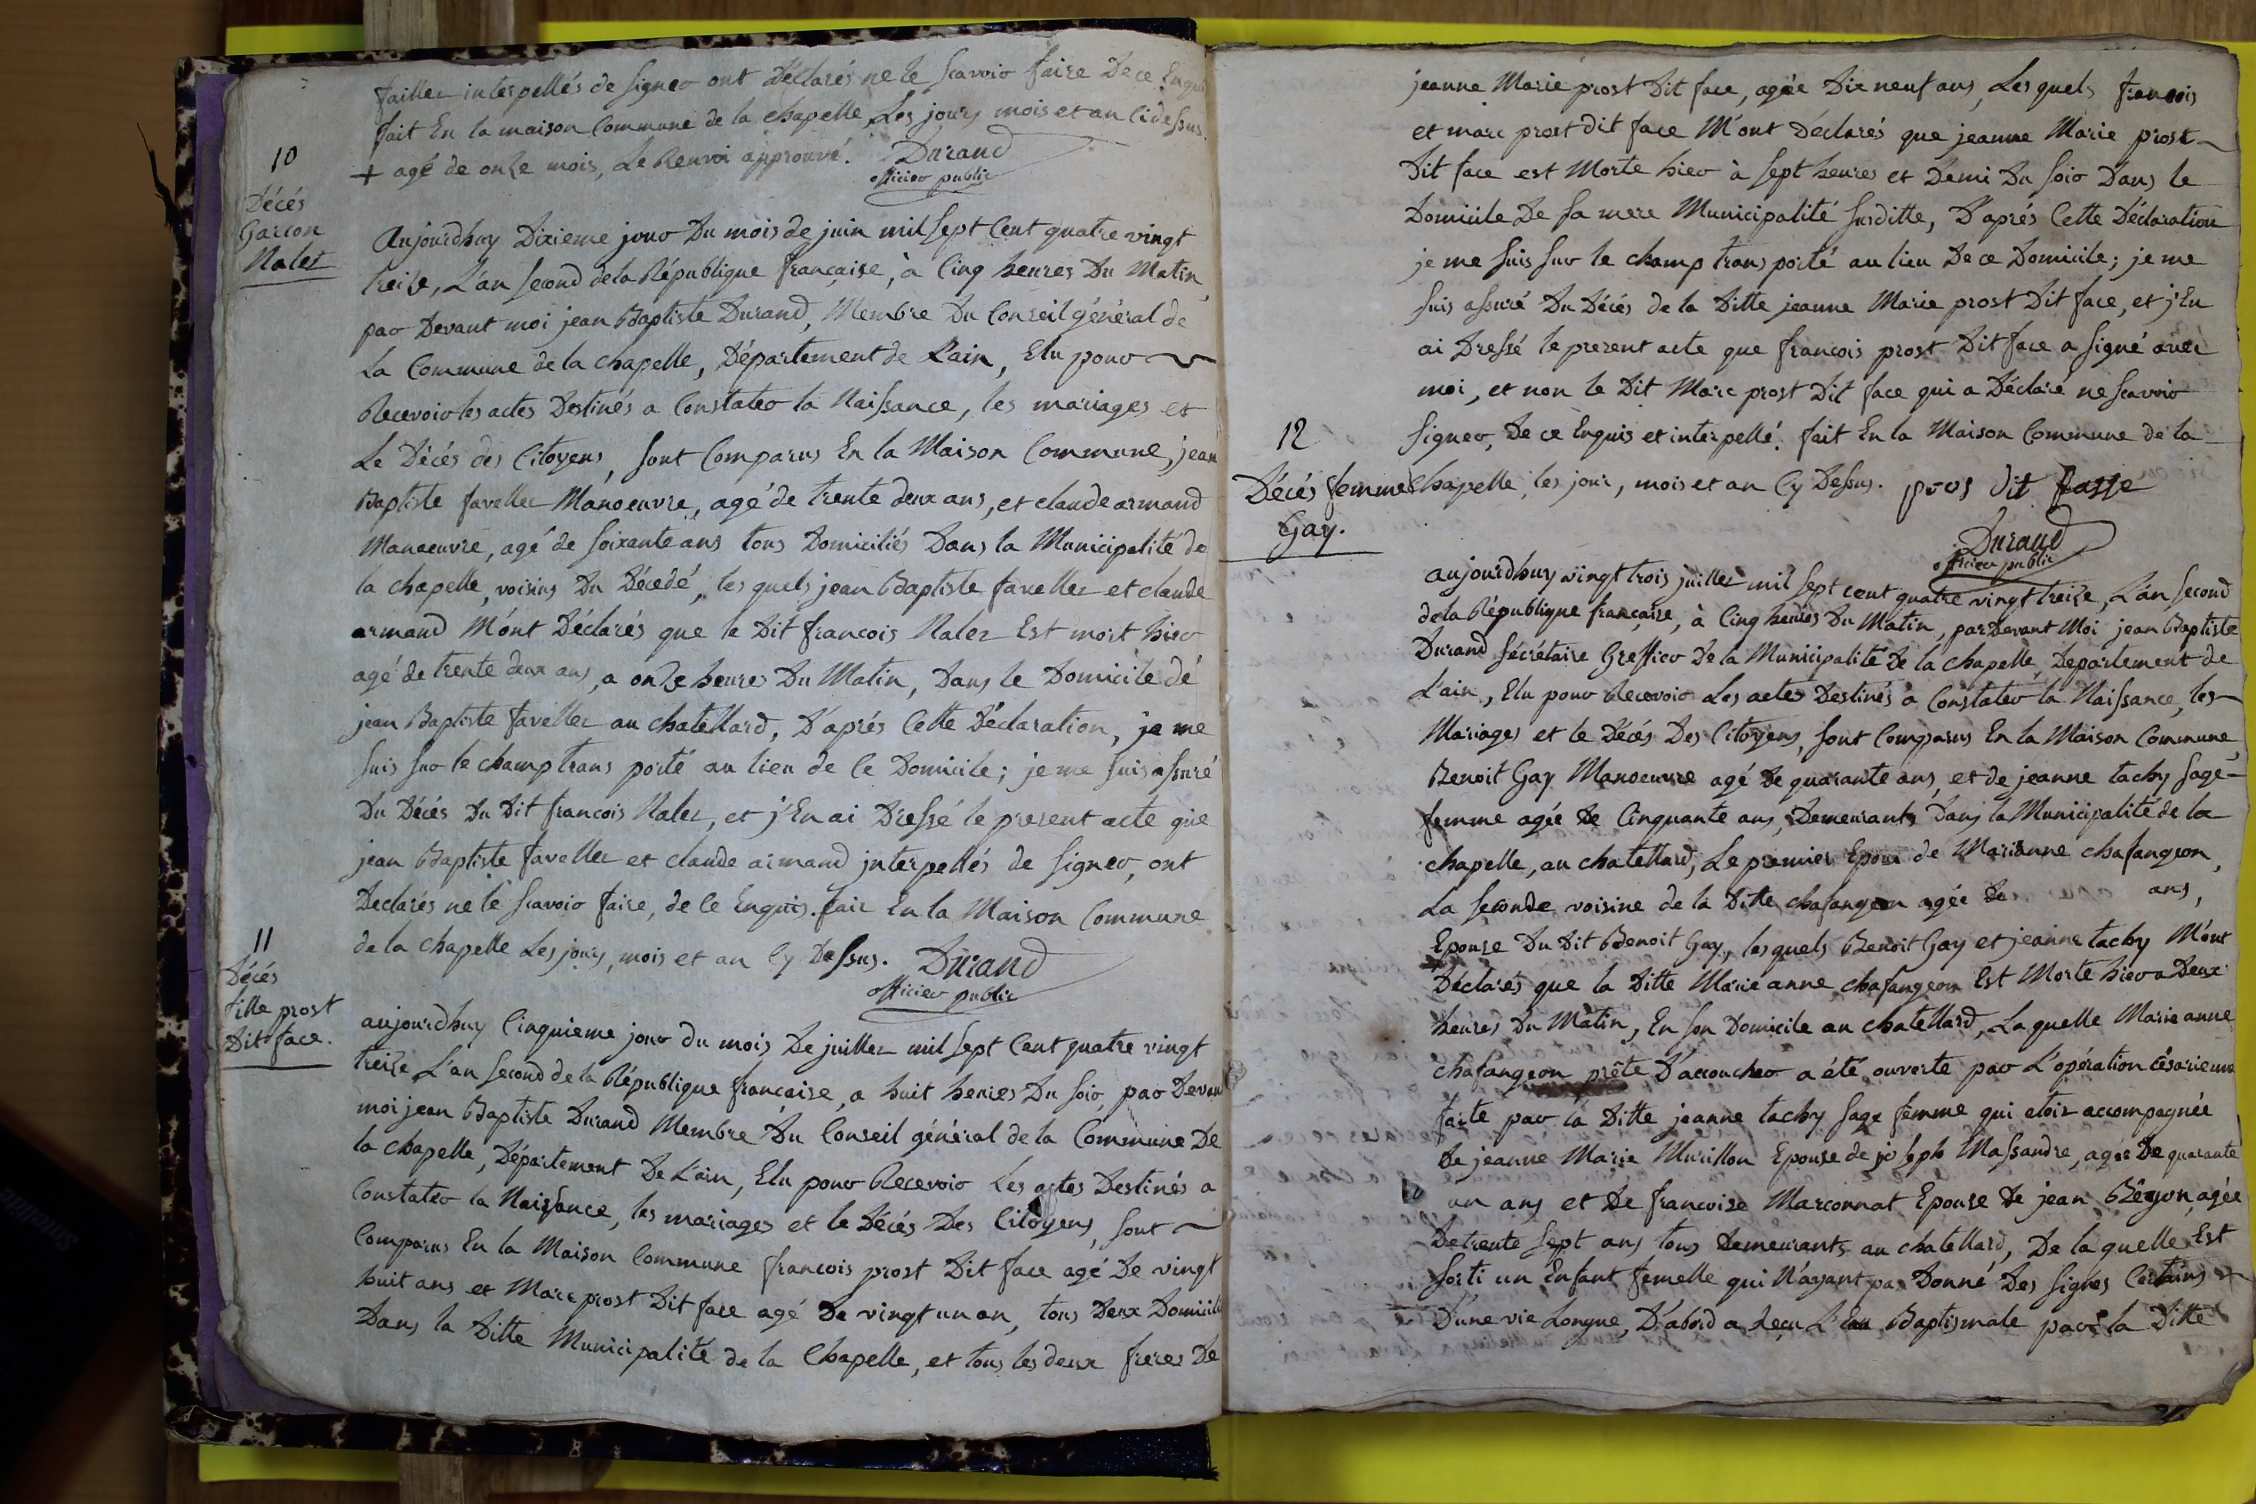 faillez interpellés de signer ont déclarés ne le scavoir faire de ce Enquis
fait En la maison Commune de la chapelle, Les jours mois et an Cidessus.
+ agé de onze mois, Le Renvoi approuvé. Durand
officier public
10
Décés
Garcon
Nalet
Aujourdhuy Dixieme jour Du mois de juin mil sept Cent quatre vingt
treize, L'an second de la République française, à Cinq heures Du Matin,
par Devant moi jean Baptiste Durand, Membre Du Conseil général de
La Commune de la chapelle, Département de L'ain, Elu pour
Recevoir les actes Destinés a Constater la Naissance, les mariages et
Le Décés des Citoyens, sont Comparus En la Maison Commune, jean
Baptiste favellet Manoeuvre, agé de trente deux ans, et claude armand
Manoeuvre, agé de soixante ans tous Domiciliés Dans la Municipalité de
la chapelle, voisins Du Décedé, les quels jean Baptiste favellet et claude
armand M'ont Déclarés que le Dit francois Nalet Est mort hier
agé de trente deux ans, a onze heures Du Matin, Dans le Domicile de
jean Baptiste favellet au chatellard, D'aprés Cette Déclaration, je me
suis sur le champ trans porté au lieu de Ce Domicile; je me suis assuré
Du Décés Du Dit francois Nalet, et j'En ai Dressé le present acte que
jean Baptiste favellet et claude armand interpellés de signer, ont
Declarés ne le scavoir faire, de Ce Enquis. fait En la Maison Commune
de la chapelle Les jours, mois et an Cy Dessus. Durand
officier public
11
Décés
fille prost
Dit face.
aujourdhuy Cinquieme jour du mois De juillet mil sept Cent quatre vingt
treize L'an second de la République francaise, a huit heures Du soir, par Devant
moi jean Baptiste Durand Membre Du Conseil général de la Commune De
la chapelle, Département De L'ain, Elu pour Recevoir Les actes Destinés a
Constater la Naissance, les mariages et le Décés Des Citoyens, sont
Comparus En la Maison Commune francois prost Dit face agé De vingt
huit ans et Marc prost Dit face agé De vingt un an, tous Deux Domicilié
Dans la Ditte Municipalité de la Chapelle, et tous les deux freres De
jeanne Marie prost Dit face, agée Dix neuf ans, Les quels francois
et marc prost dit face M'ont Déclarés que jeanne Marie prost
Dit face est Morte hier à sept heures et Demi Du soir Dans le
Domicile De sa mere Municipalité susditte, D'aprés Cette Déclaration
je me suis sur le champ trans porté au lieu De ce Domicile; je me
suis assuré Du Décés de la Ditte jeanne Marie prost Dit face, et j'En
ai Dressé le present acte que françois prost Dit face a signé avec
moi, et non le Dit Marc prost Dit face qui a Déclaré ne scavoir
signer, De ce Enquis et interpellé. fait En la Maison Commune de la
chapelle, les jour, mois et an Cy Dessus. pros dit fasse
Durand
officier public
12
Décés femme
Gay.
aujourdhuy vingt trois juillet mil sept cent quatre vingt treize, L'an second
de la République française, à Cinq heures Du Matin, par Devant Moi jean Baptiste
Durand sécrétaire Greffier De la Municipalité De la chapelle, Departement de
L'ain, Elu pour Recevoir Les actes Destinés a Constater la Naissance, les
Mariages et le Décés Des Citoyens, sont Comparus En la Maison Commune,
Benoit Gay Manoeuvre agé De quarante ans, et de jeanne tachy sage
femme agée De Cinquante ans, Demeurants Dans la Municipalité de la
chapelle, au chatellard, Le premier Epoux de Marianne chafangeon,
La seconde voisine de la Ditte chafangeon agée De ans,
Epouse Du Dit Benoit Gay, les quels Benoit Gay et jeanne tachy M'ont
Déclarés que la Ditte Marie anne chafangeon Est Morte hier a Deux
heures Du Matin, En son Domicile au chatellard, La quelle Marie anne
chafangeon prête D'accoucher a été ouverte par L'opération Césarienne
faite par la Ditte jeanne tachy sage femme qui etoit accompagnée
De jeanne Marie Murillon Epouse de joseph Massandre, agée De quarante
un ans et De francoise Marconnat Epouse De jean Béryon, agée
De trente sept ans, tous Demeurants au chatellard, De la quelle Est
sorti un Enfant femelle qui N'ayant pas Donné Des signes Certains
D'une vie Longue, D'abord a Reçu L'Eau Baptismale par la Ditte